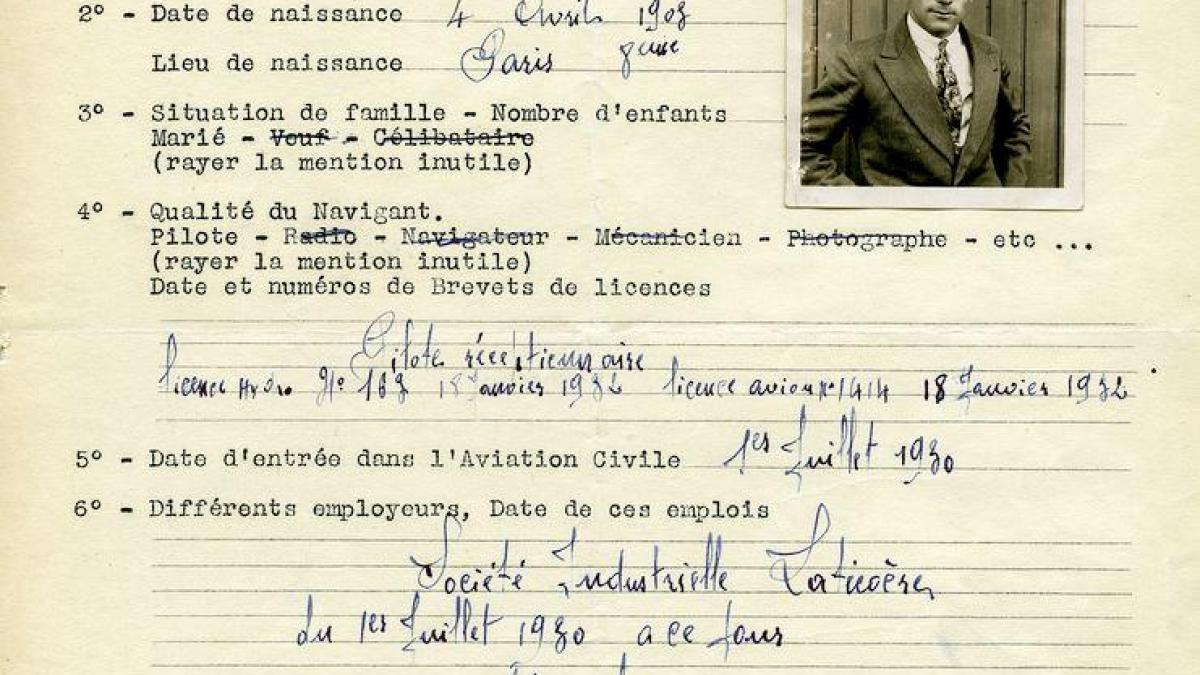 2° - Date de naissance 4 Avril 1903
Lieu de naissance Paris 8eme
3° - Situation de famille - Nombre d'enfants
Marié - Veuf - Célibataire
(rayer la mention inutile)
4° - Qualité du Navigant.
Pilote - Radio - Navigateur - Mécanicien - Photographe - etc ...
(rayer la mention inutile)
Date et numéros de Brevets de licences
Pilote réceptionnaire
licence Hydro N° 163 18 Janvier 1932 licence avion n° 1414 18 Janvier 1932
5° - Date d'entrée dans l'Aviation Civile 1er Juillet 1930
6° - Différents employeurs, Date de ces emplois
Société Industrielle Latécoère
du 1er Juillet 1930 a ce Jour